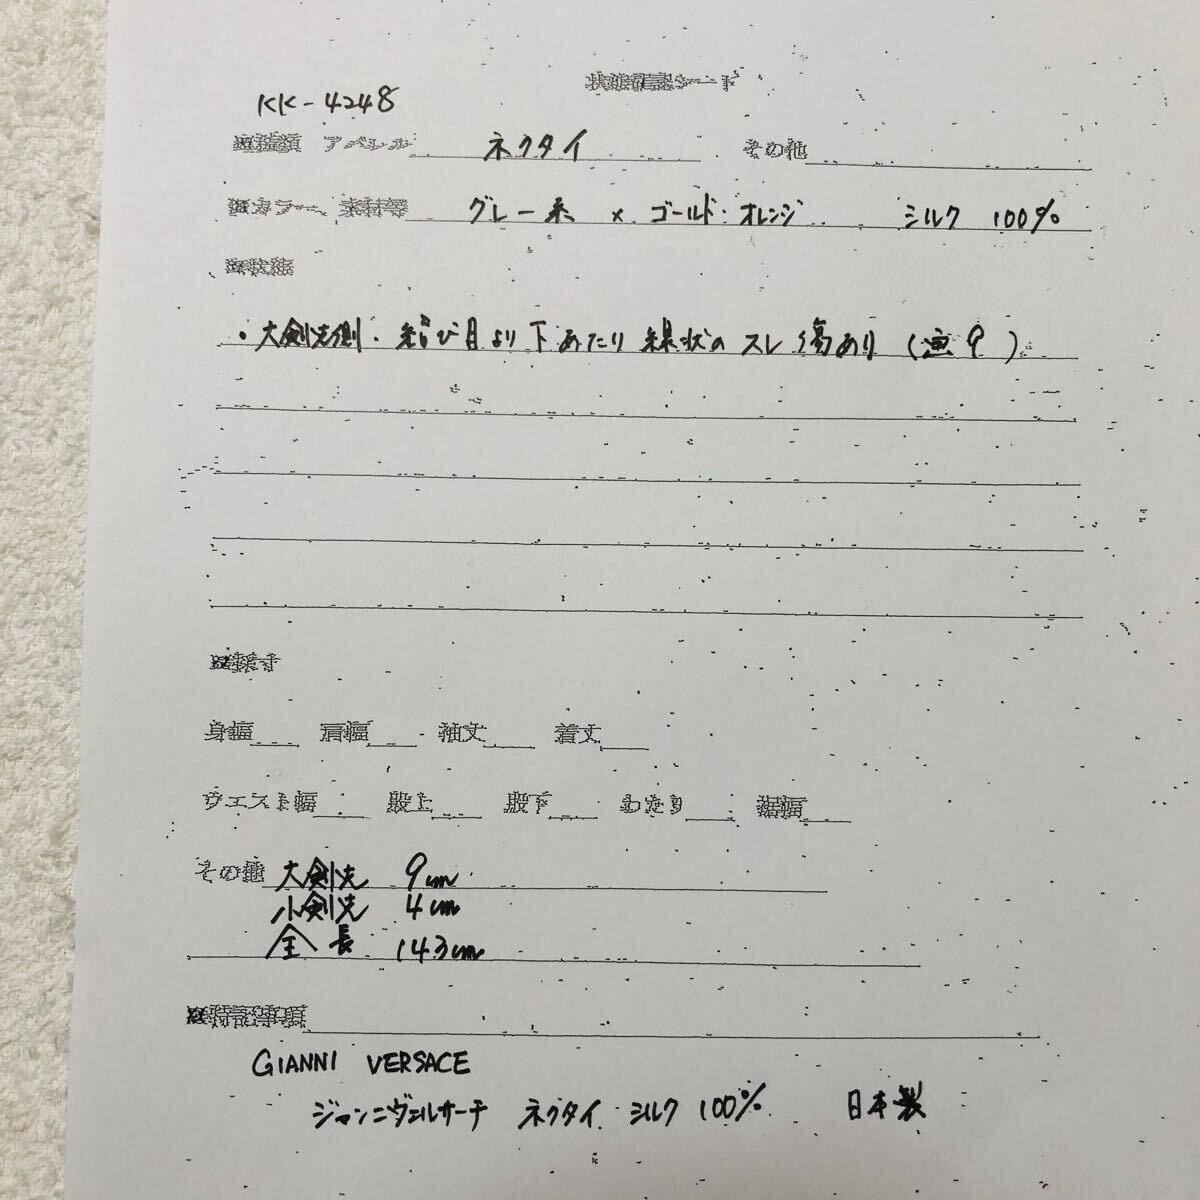 状態確認シート
KK-4248
種類 アパレル ネクタイ その他
カラー、素材等 グレー系 × ゴールド・オレンジ シルク 100%
状態
・大剣先側・結び目より下あたり 線状の スレ傷あり (画 9 )
採寸
身幅 肩幅 袖丈 着丈
ウエスト幅 股上 股下 わたり 裾幅
その他 大剣先 9cm
小剣先 4cm
全長 143cm
特記事項
GIANNI VERSACE
ジャンニヴェルサーチ ネクタイ シルク 100% 日本製